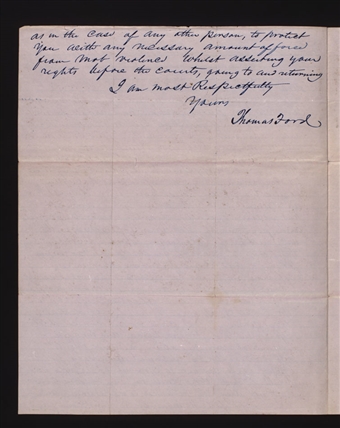 as in the case of any other person, to protect
you with any necessary amount of force
from mob violence whilst asserting your
rights before the courts, going to and returning
I am most Respectfully
Yours
Thomas Ford